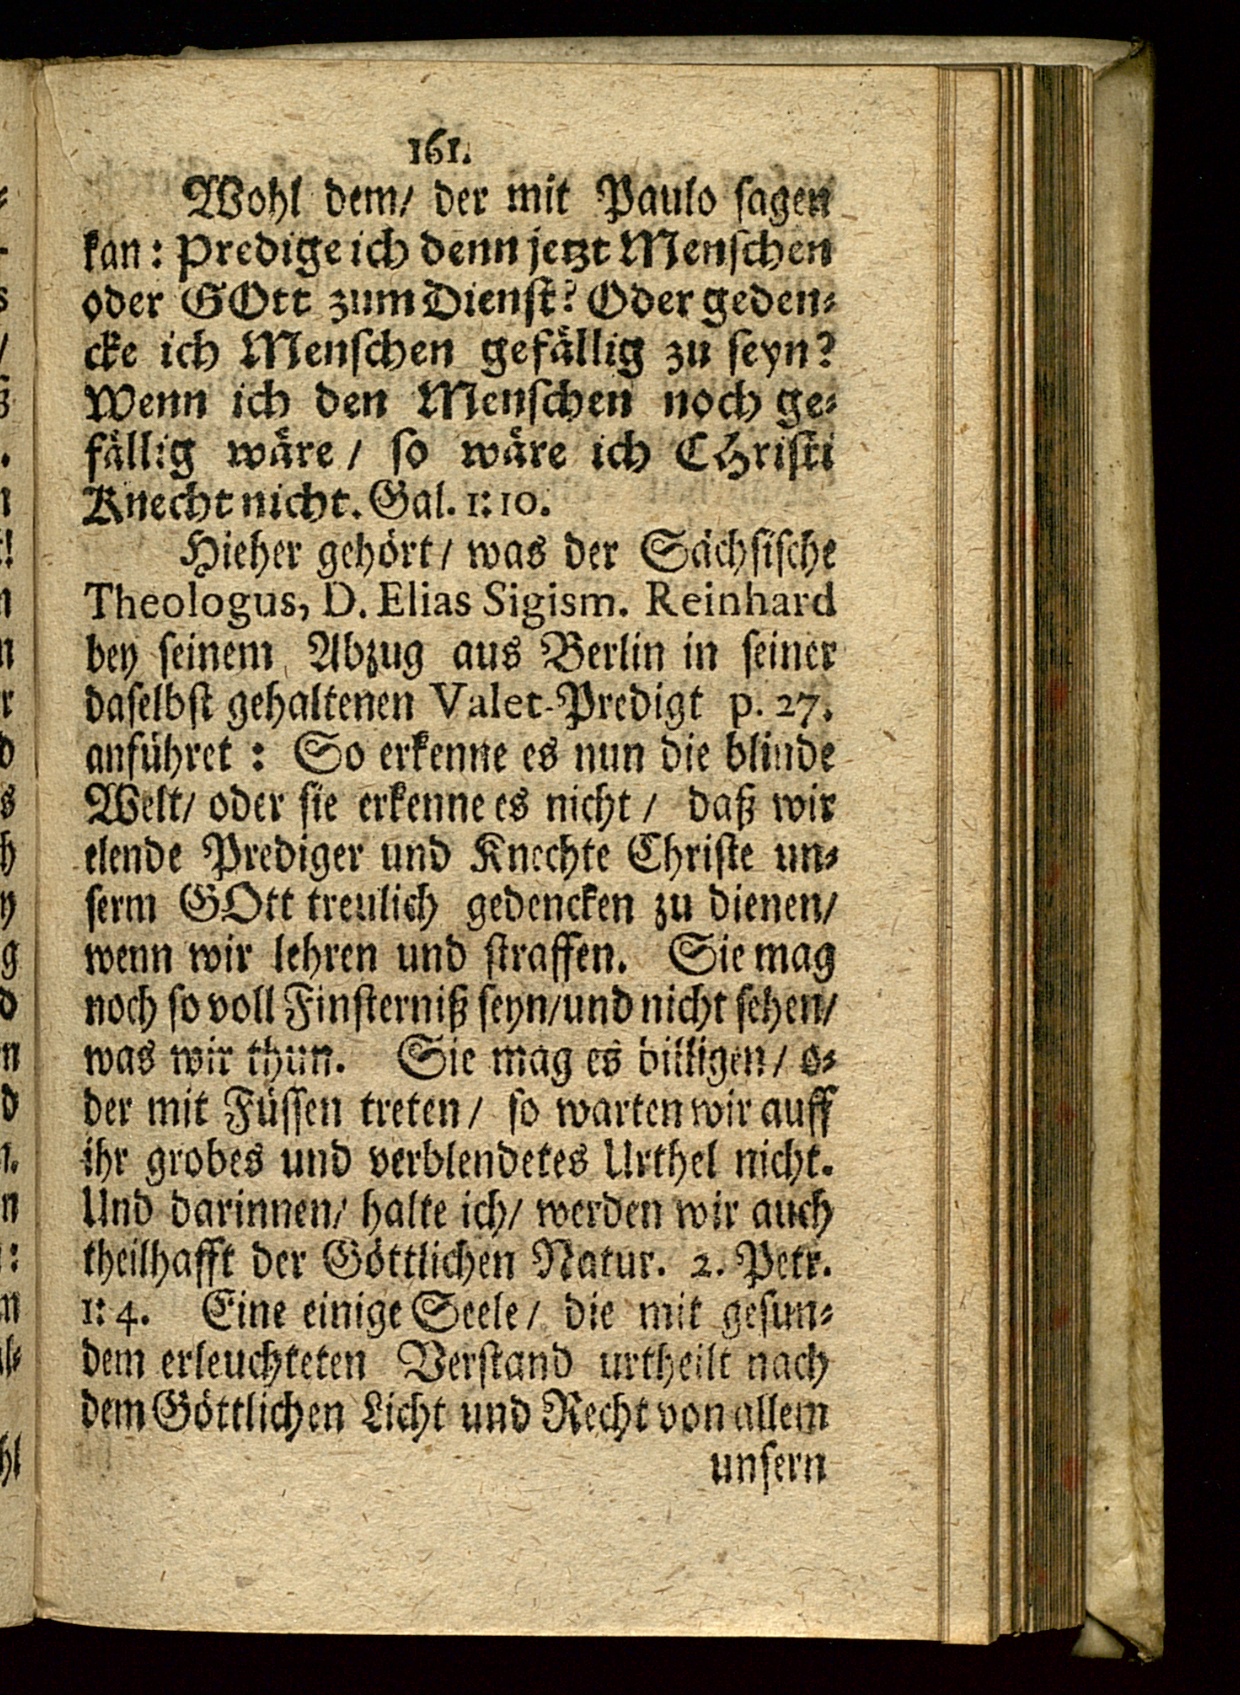 161.
Wohl dem/ der mit Paulo sagen
kan: Predige ich denn jetzt Menschen
oder GOtt zum Dienst? Oder geden-
cke ich Menschen gefällig zu seyn?
Wenn ich den Menschen noch ge-
fällig wäre / so wäre ich CHristi
Knecht nicht. Gal. 1: 10.
Hieher gehört/ was der Sächsische
Theologus, D. Elias Sigism. Reinhard
bey seinem Abzug aus Berlin in seiner
daselbst gehaltenen Valet-Predigt p. 27.
anführet : So erkenne es nun die blinde
Welt/ oder sie erkenne es nicht / daß wir
elende Prediger und Knechte Christe un-
serm GOtt treulich gedencken zu dienen/
wenn wir lehren und straffen. Sie mag
noch so voll Finsterniß seyn/und nicht sehen/
was wir thun. Sie mag es billigen / o-
der mit Füssen treten / so warten wir auff
ihr grobes und verblendetes Urthel nicht.
Und darinnen/ halte ich/ werden wir auch
theilhafft der Göttlichen Natur. 2. Petr.
1: 4. Eine einige Seele / die mit gesun-
dem erleuchteten Verstand urtheilt nach
dem Göttlichen Licht und Recht von allem
unsern